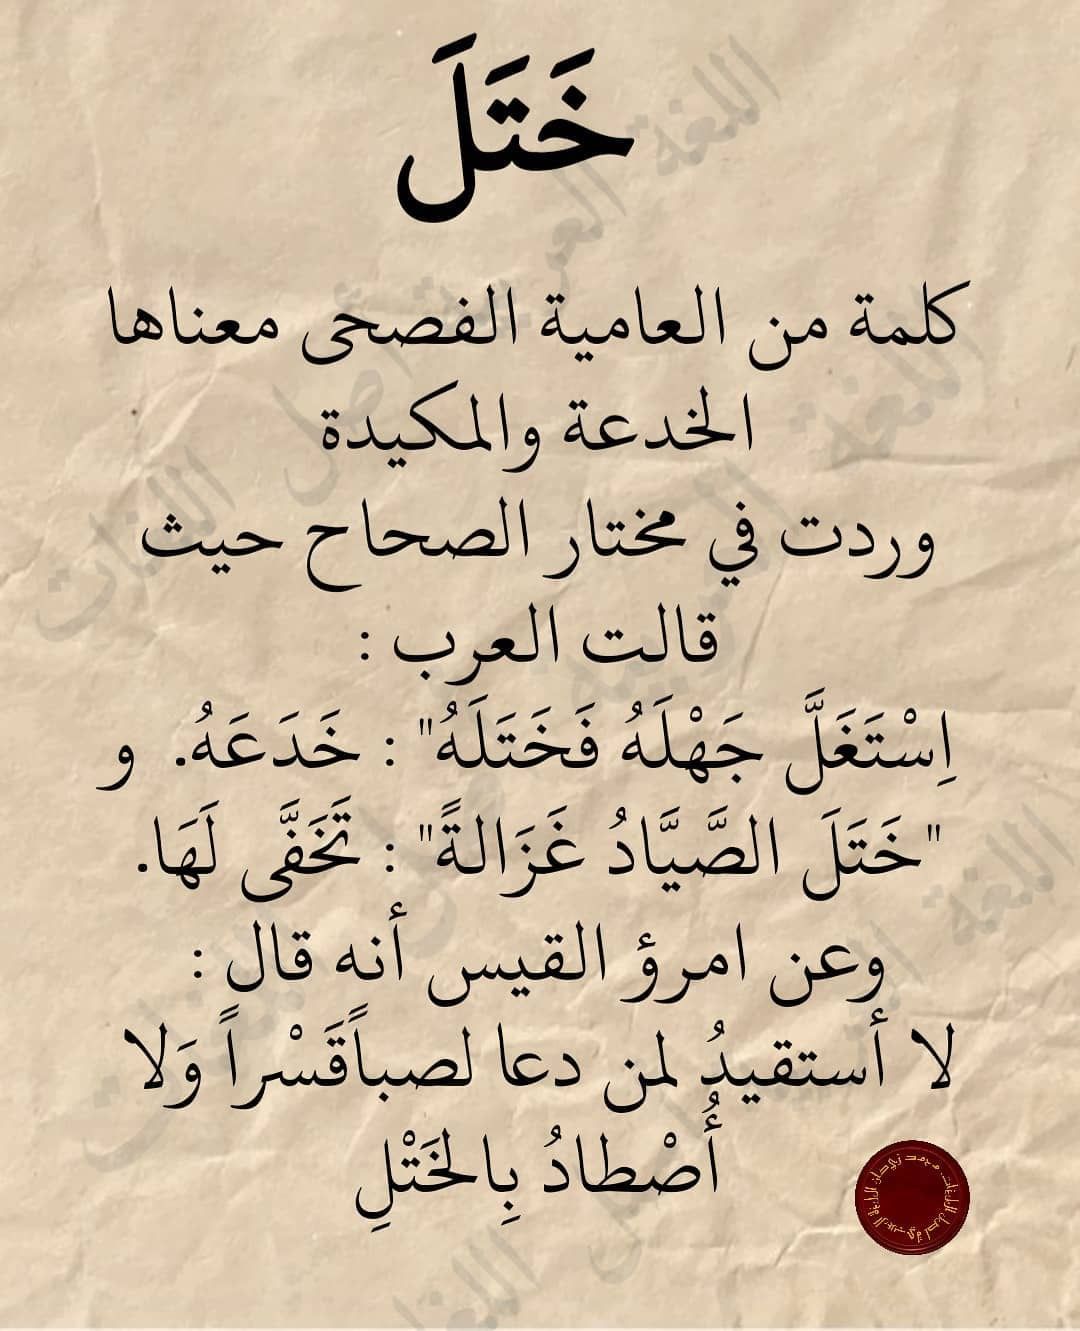 خَتَلَ
كلمة من العامية الفصحى معناها
الخدعة والمكيدة
وردت في مختار الصحاح حيث
قالت العرب :
اِسْتَغَلَّ جَهْلَهُ فَخَتَلَهُ" : خَدَعَهُ. و
"خَتَلَ الصَّيَّادُ غَزَالةً" : تَخَفَّى لَهَا.
وعن امرؤ القيس أنه قال :
لا أستقيدُ لمن دعا لصباًقَسْراً وَلا
أُصْطادُ بِالخَتْلِ
اللغة العربية أصل اللغات